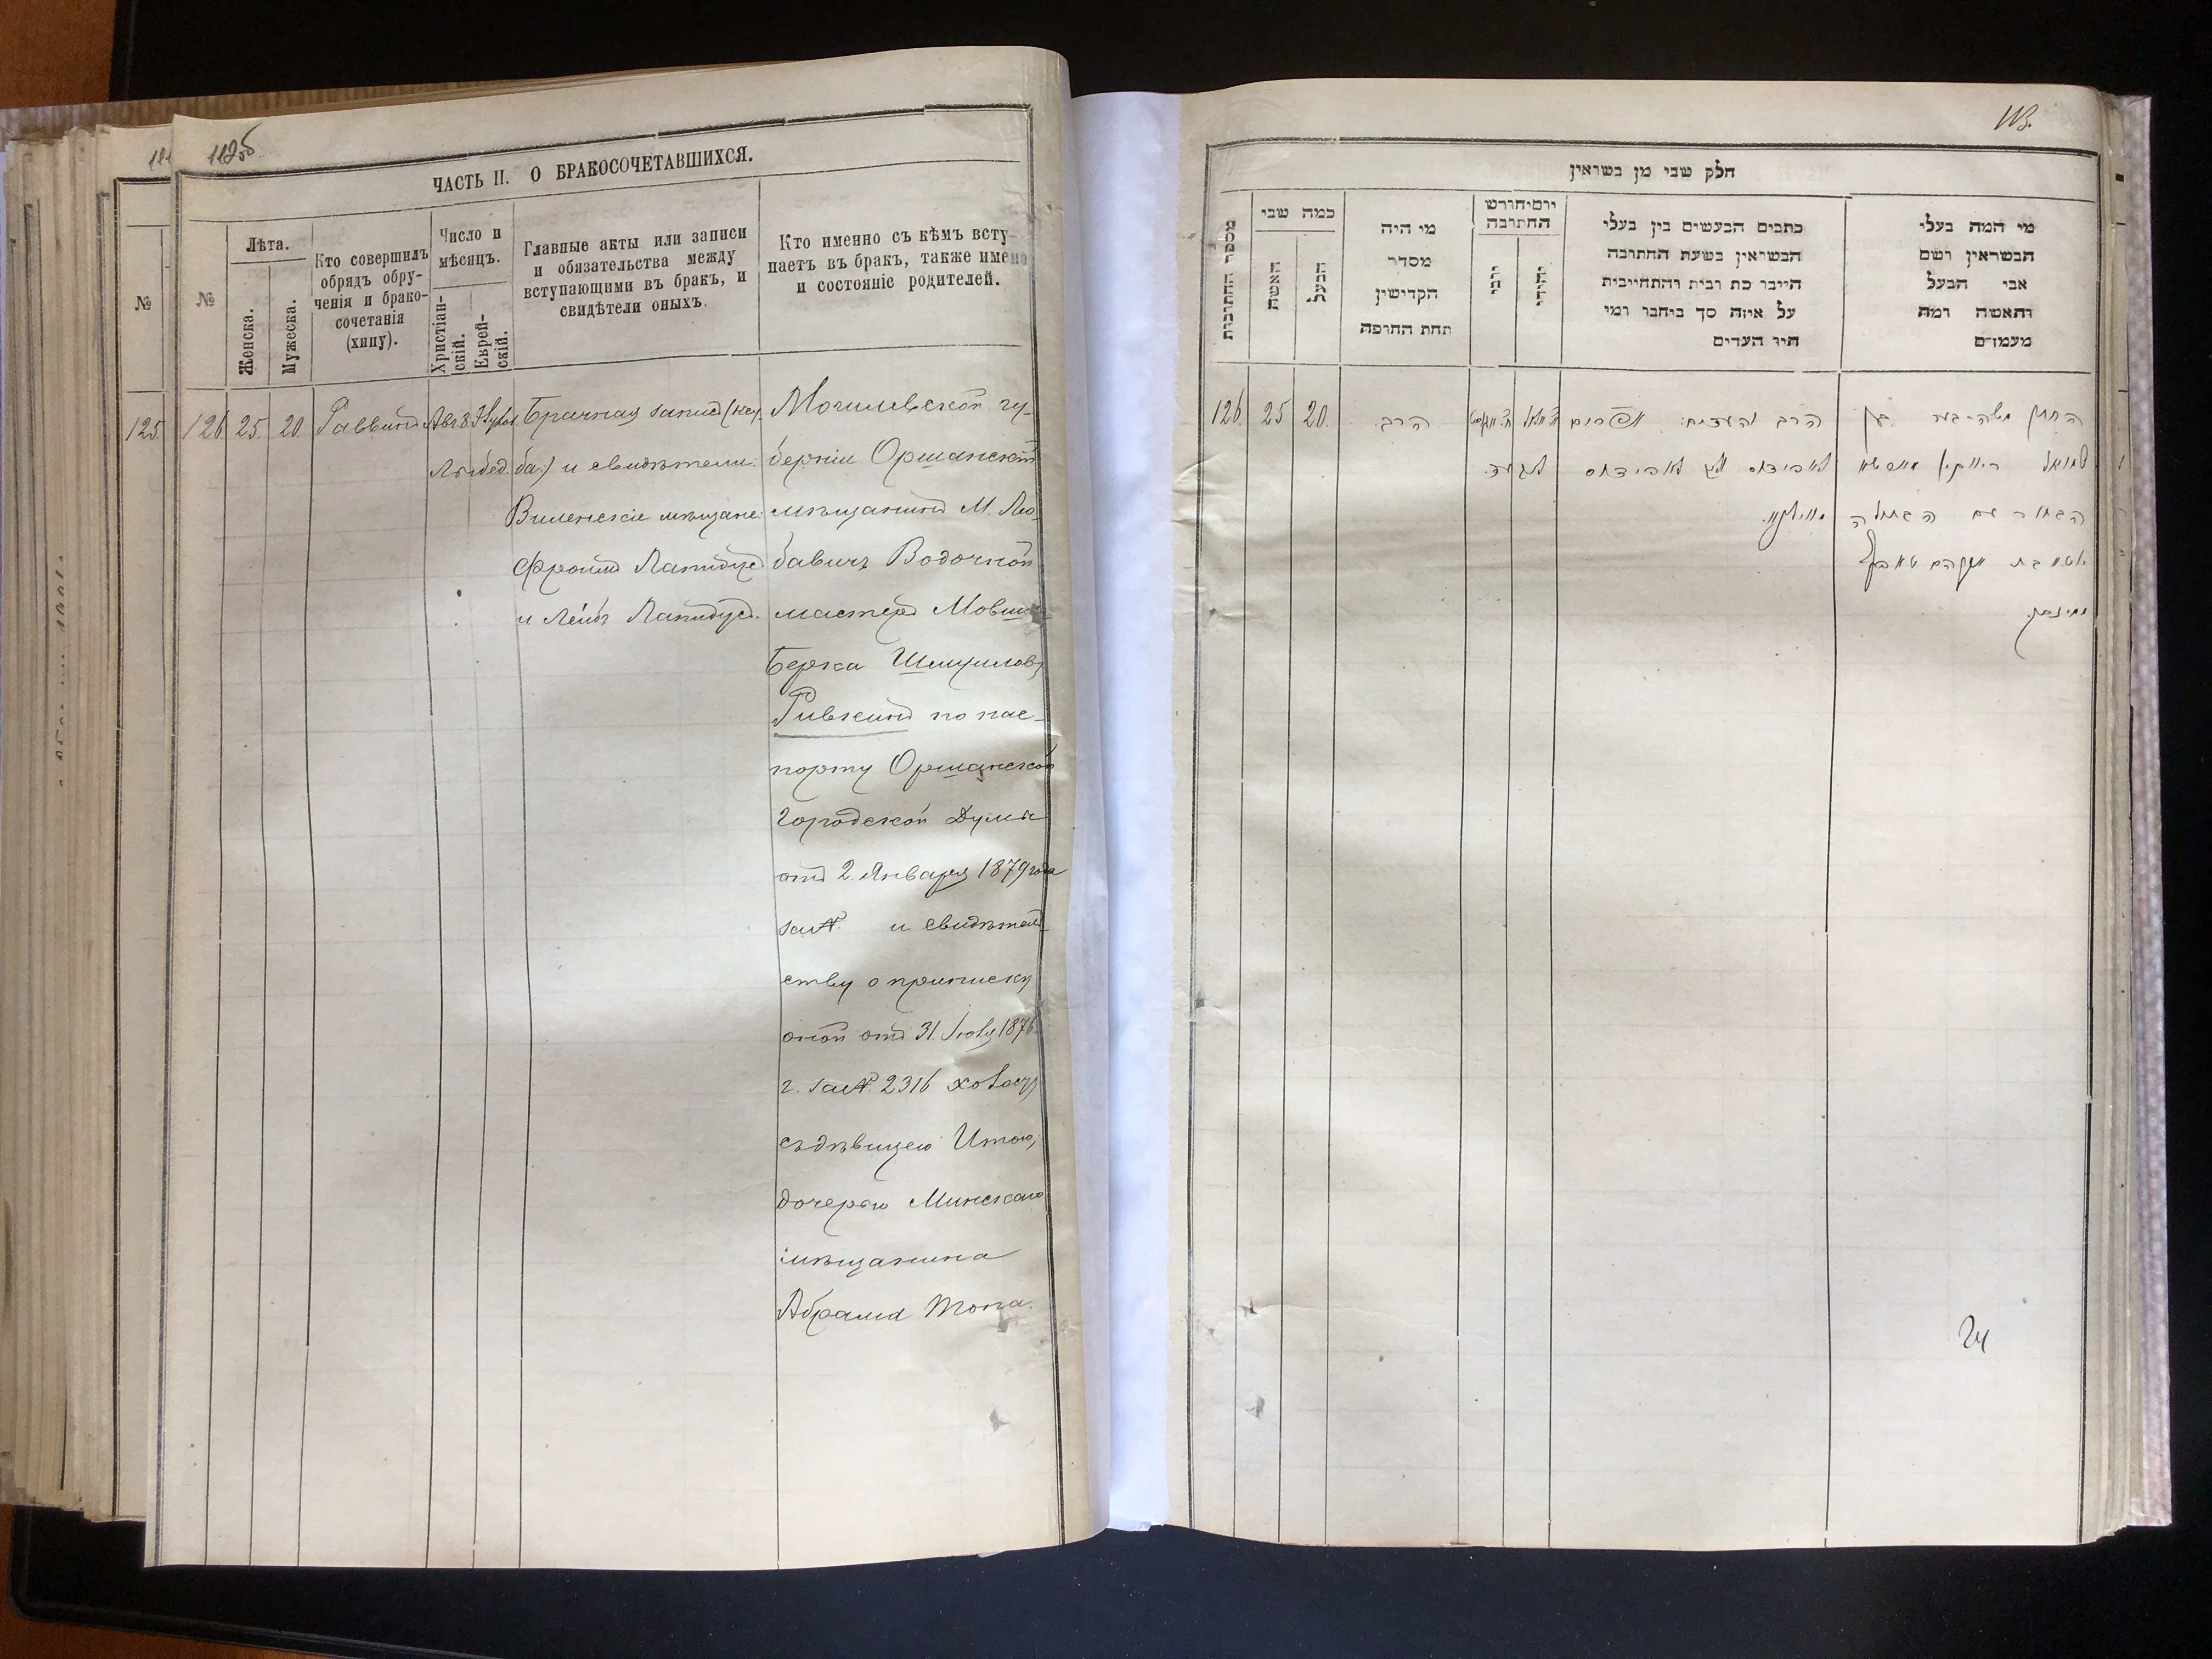 112об
ЧАСТЬ II. О БРАКОСОЧЕТАВШИХСЯ.
№
№
Лѣта.
Женска.
Мужеска.
Кто совершилъ
обрядъ обру-
ченія и брако-
сочетанія
(хипу).
Число и
мѣсяцъ.
Христіан-
скій.
Еврей-
скій.
Главные акты или записи
и обязательства между
вступающими въ бракъ, и
свидѣтели оныхъ.
Кто именно съ кѣмъ всту-
паетъ въ бракъ, также имена
и состояніе родителей.
125.
126. 25. 20. Раввинъ
Брачная запись (кету-
ба:) и свидѣтели:
Виленскіе мѣщане:
Фроимъ Лапидусъ
и Лейбъ Лапидусъ.
Могилевской гу-
берніи Оршанскій
мѣщанинъ М. Лю-
бавичъ Водочной
мастеръ Мовша
Берка Шмуиловъ
Ривкинъ по пас-
порту Оршанской
Городской Думы
отъ 2. Января 1879 года
за № и свидѣтель-
ству о приписку
оной отъ 31. Іюля 1876
г. за №. 2316 холост.
съ дѣвицею Итою,
дочерью Минскаго
мѣщанина
Абрама Топа.
113.
חלק שני מן בשואין
מספר החתונות
כמה שני
האשה
הבעל
מי היה
מסדר
הקדישין
תחת החופה
יום וחודש
החתונה
יוני
יהודי
כתבים הנעשים בין בעלי
הנשואין בשעת החתונה
היינו כת רבית והתחייבית
על איזה סך ביחבו ומי
היו העדים
מי המה בעלי
הנשואין ושם
אבי הבעל
והאשה ומה
מעמדם
126. 25 20. הרב
הרב והעדים: אפרים
לאפידוס לייב לאפידוס
מווילנא.
החתן משה-בער בן
שמואל ריווקין
הבחור עם הבתולה
איטא בת אברהם
ממינסק.
24